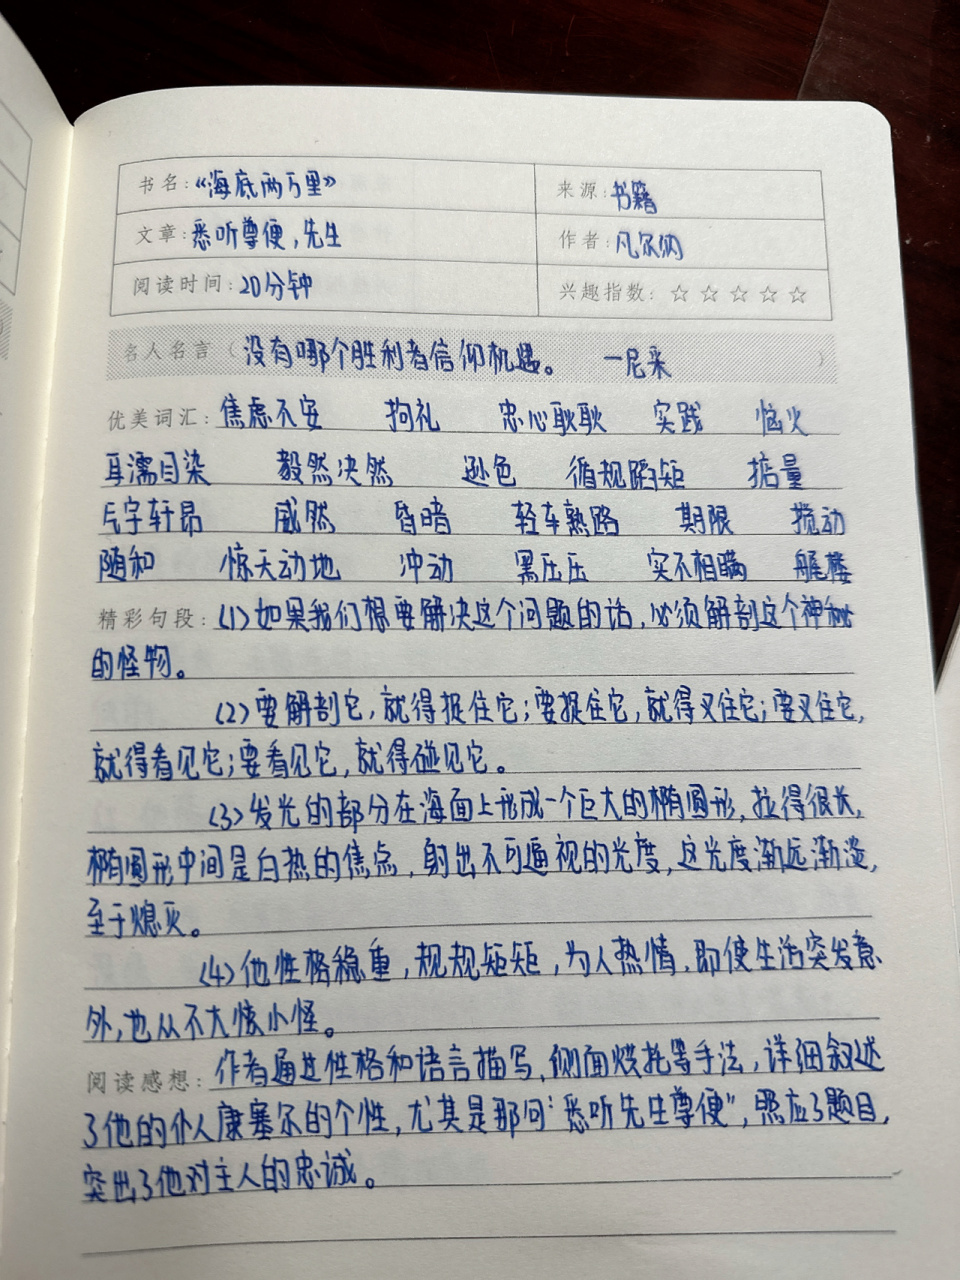 书名:《海底两万里》 来源:书籍
文章:悉听尊便,先生 作者:凡尔纳
阅读时间:20分钟 兴趣指数:☆☆☆☆☆
名人名言(没有哪个胜利者信仰机遇。 —尼采)
优美词汇:焦虑不安 拘礼 忠心耿耿 实践 恼火
耳濡目染 毅然决然 逊色 循规蹈矩 掂量
气宇轩昂 威然 昏暗 轻车熟路 期限 搅动
随和 惊天动地 冲动 黑压压 实不相瞒 艉楼
精彩句段:(1)如果我们想要解决这个问题的话,必须解剖这个神秘
的怪物。
(2)要解剖它,就得捉住它;要捉住它,就得叉住它;要叉住它,
就得看见它;要看见它,就得碰见它。
(3)发光的部分在海面上形成一个巨大的椭圆形,拉得很长,
椭圆形中间是白热的焦点,射出不可逼视的光度,这光度渐远渐淡,
至于熄灭。
(4)他性格稳重,规规矩矩,为人热情,即使生活突发意
外,也从不大惊小怪。
阅读感想:作者通过性格和语言描写、侧面烘托等手法,详细叙述
了他的仆人康塞尔的个性,尤其是那句“悉听先生尊便”,照应了题目,
突出了他对主人的忠诚。